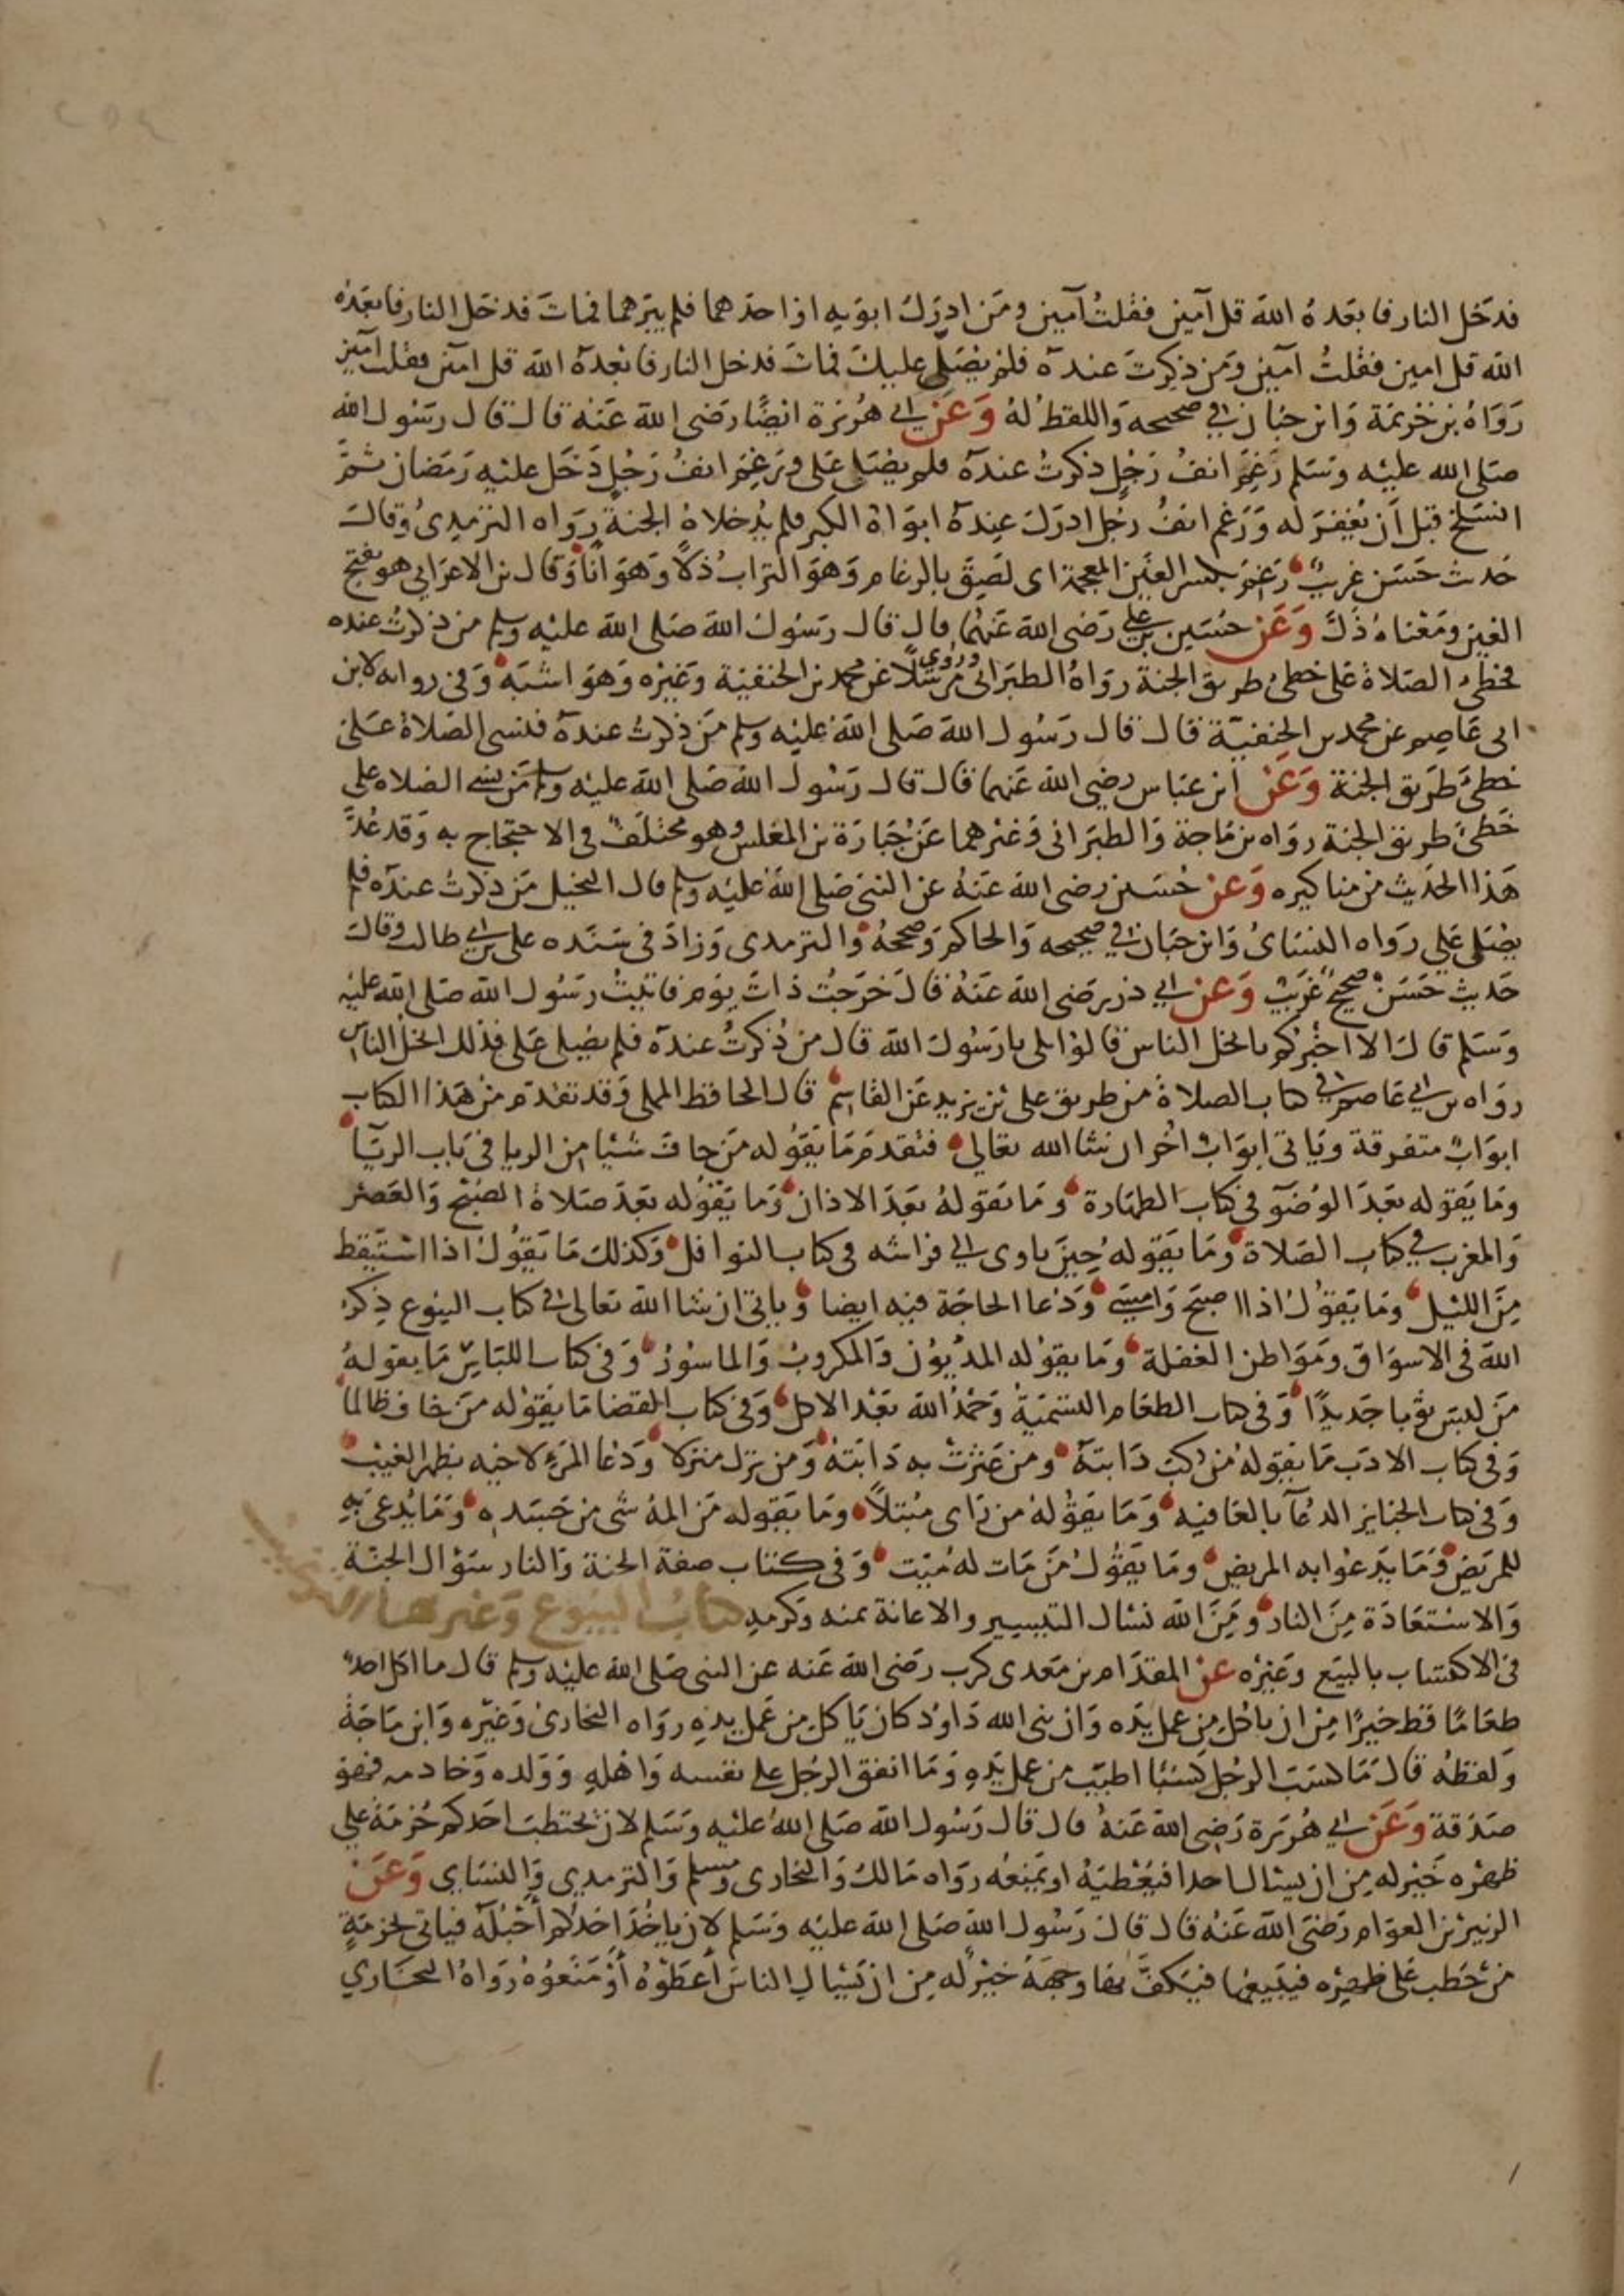 فدخل النار فابعده الله قل آمين فقلت آمين ومن ادرك ابويه او احدهما فلم يبرهما فمات فدخل النار فابعده
الله قل امين فقلت آمين ومن ذكرت عنده فلم يصل عليك فمات فدخل النار فابعده الله قل آمين فقلت آمين
رواه بن خزيمة وابن حبان في صحيحه واللفظ له وعن ابي هريرة ايضا رضي الله عنه قال قال رسول الله
صلى الله عليه وسلم رغم انف رجل ذكرت عنده فلم يصل علي ورغم انف رجل دخل عليه رمضان ثم
انسلخ قبل أن يغفر له ورغم انف رجل ادرك عنده ابواه الكبر فلم يدخلاه الجنة رواه الترمذي وقال
حديث حسن غريب رغم بكسر الغين المعجمة اي لصق بالرغام وهو التراب ذلا وهوانا وقال بن الاعرابي هو بفتح
الغين ومعناه ذل وعن حسين بن علي رضي الله عنهما قال قال رسول الله صلى الله عليه وسلم من ذكرت عنده
فخطئ الصلاة على خطئ طريق الجنة رواه الطبراني وروي مرسلا عن محمد بن الحنفية وغيره وهو اشبه وفي رواية لابن
ابي عاصم عن محمد بن الحنفية قال قال رسول الله صلى الله عليه وسلم من ذكرت عنده فنسي الصلاة علي
خطئ طريق الجنة وعن ابن عباس رضي الله عنهما قال قال رسول الله صلى الله عليه وسلم من نسي الصلاة علي
خطئ طريق الجنة رواه بن ماجة والطبراني وغيرهما عن جبارة بن المغلس وهو مختلف في الاحتجاج به وقد عد
هذا الحديث من مناكيره وعن حسين رضي الله عنه عن النبي صلى الله عليه وسلم قال البخيل من ذكرت عنده فلم
يصل علي رواه النسائ وابن حبان في صحيحه والحاكم وصححه والترمذي وزاد في سنده علي بن ابي طالب وقال
حديث حسن صحيح غريب وعن ابي ذر رضي الله عنه قال خرجت ذات يوم فاتيت رسول الله صلى الله عليه
وسلم قال الا اخبركم بابخل الناس قالوا بلى يا رسول الله قال من ذكرت عنده فلم يصل علي فذلك ابخل الناس
رواه بن ابي عاصم في كتاب الصلاة من طريق علي بن يزيد عن القاسم قال الحافظ المملي وقد تقدم من هذا الكتاب
ابواب متفرقة وياتي ابواب اخر ان شا الله تعالى فتقدم ما يقوله من خاف شيئا من الريا في باب الريا
وما يقوله بعد الوضوء في كتاب الطهارة وما يقوله بعد الاذان وما يقوله بعد صلاة الصبح والعصر
والمغرب في كتاب الصلاة وما يقوله حين ياوي الى فراشه في كتاب النوافل وكذلك ما يقول اذا استيقظ
من الليل وما يقول اذا اصبح وامسى ودعا الحاجة فيه ايضا وياتي ان شا الله تعالى في كتاب البيوع ذكر
الله في الاسواق ومواطن الغفلة وما يقوله المديون والمكروب والماسور وفي كتاب اللباس ما يقوله
من لبس ثوبا جديدا وفي كتاب الطعام التسمية وحمد الله بعد الاكل وفي كتاب القضا ما يقوله من خاف ظالما
وفي كتاب الادب ما يقوله من ركب دابته ومن عثرت به دابته ومن نزل منزلا ودعا المرء لاخيه بظهر الغيب
وفي كتاب الجنايز الدعآ بالعافيه وما يقوله من راى مبتلا وما يقوله من المه شي من جسده وما يدعى به
للمريض وما يدعوا به المريض وما يقول من مات له ميت وفي كتاب صفة الجنة والنار سؤال الجنة
والاستعاذة من النار ومن الله نسال التيسير والاعانة بمنه وكرمه كتاب البيوع وغيرها الترغيب
في الاكتساب بالبيع وغيره عن المقدام بن معدي كرب رضي الله عنه عن النبي صلى الله عليه وسلم قال ما اكل احد
طعاما قط خيرا من ان ياكل من عمل يده وان نبي الله داود كان ياكل من عمل يده رواه البخاري وغيره وابن ماجة
ولفظه قال ما كسب الرجل كسبا اطيب من عمل يده وما انفق الرجل على نفسه واهله وولده وخادمه فهو
صدقة وعن ابي هريرة رضي الله عنه قال قال رسول الله صلى الله عليه وسلم لان يحتطب احدكم حزمة على
ظهره خير له من ان يسال احدا فيعطيه او يمنعه رواه مالك والبخاري ومسلم والترمذي والنساي وعن
الزبير بن العوام رضي الله عنه قال قال رسول الله صلى الله عليه وسلم لان ياخذ احدكم أحبله فياتي بحزمة
من حطب على ظهره فيبيعها فيكف بها وجهه خير له من ان يسال الناس أعطوه أو منعوه رواه البخاري